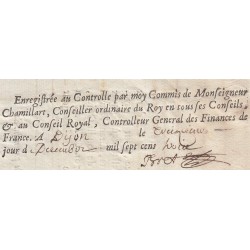 Enregistrée au Controlle par moy Commis de Monseigneur
Chamillart, Conseiller ordinaire du Roy en tous ses Conseils,
& au Conseil Royal, Controlleur General des Finances de
France. A Dijon le
jour de Decembre mil sept cens